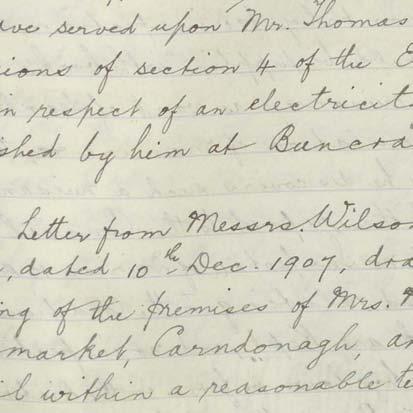 ave served upon Mr. Thomas
sions of section 4 of the E
in respect of an electricit
shed by him at Buncra
Letter from Messrs. Wilson
, dated 10th Dec. 1907, dra
ng of the premises of Mrs.
market, Carndonagh, an
il within a reasonable te